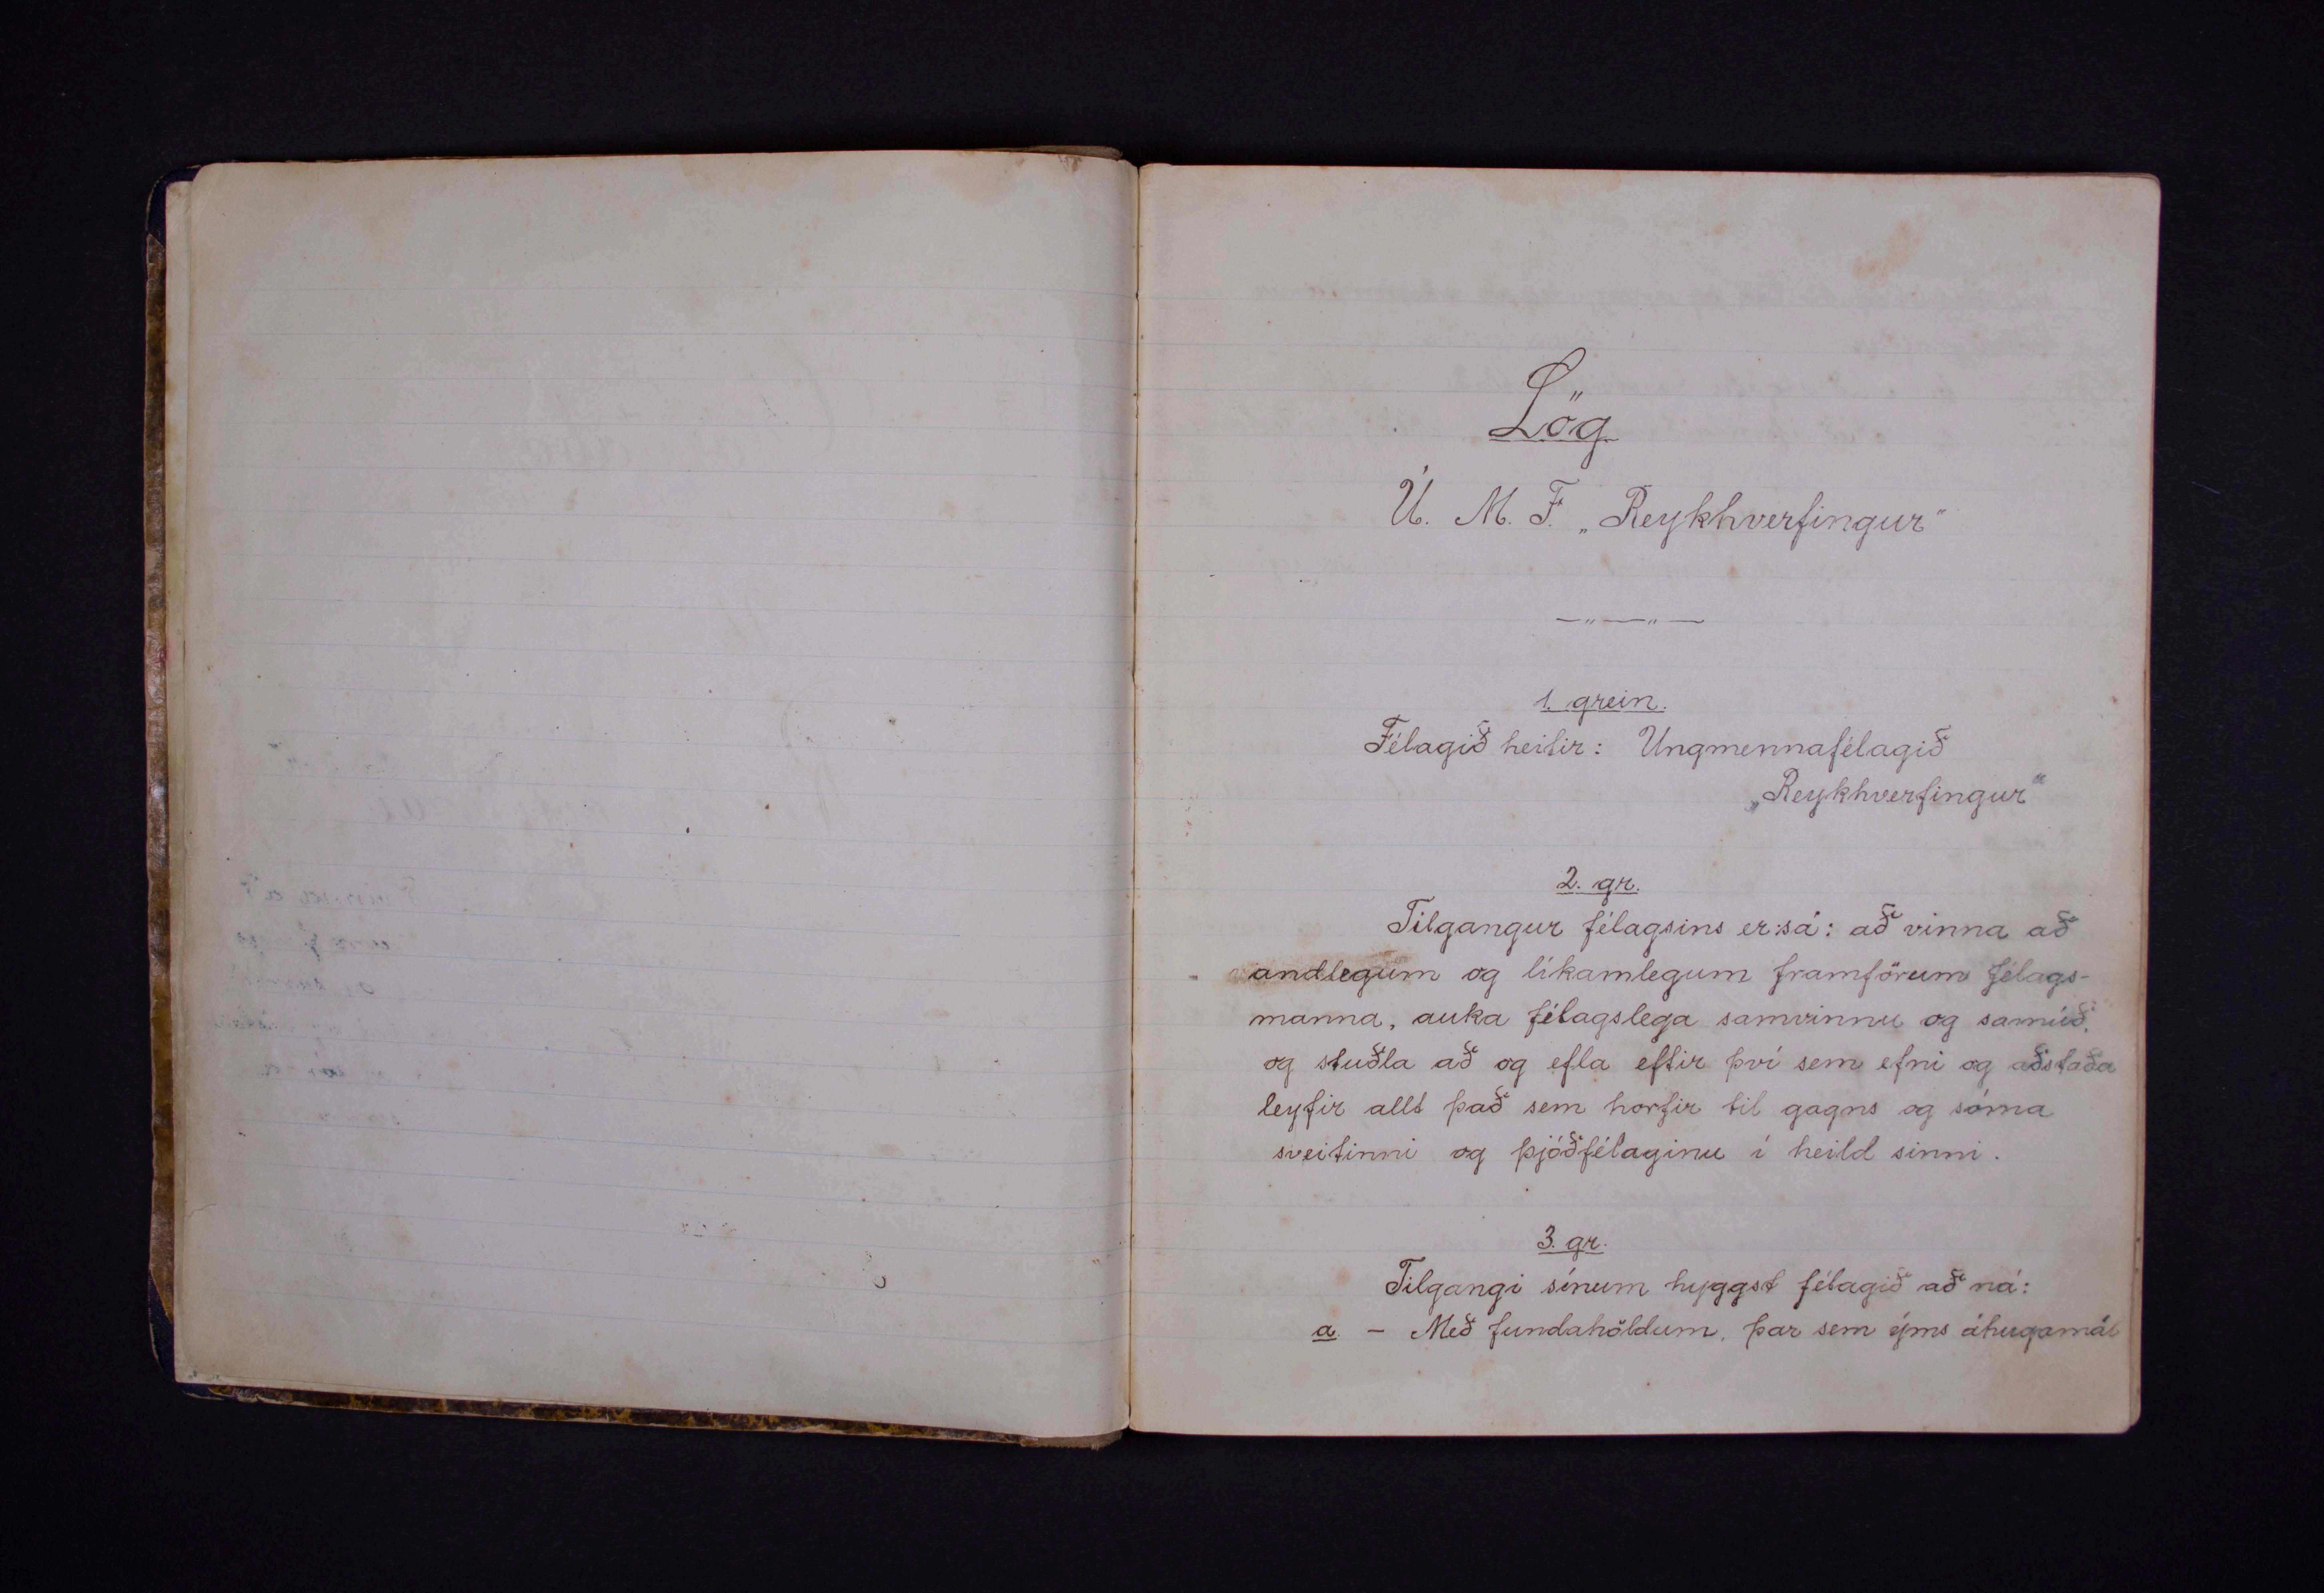 Lög
Ú. M. F. „Reykhverfingur"
—"——"—
1. grein.
Félagið heitir: Ungmennafélagið
„Reykhverfingur"
2. gr.
Tilgangur félagsins er sá: að vinna að
andlegum og líkamlegum framförum félags-
manna, auka félagslega samvinnu og samúð,
og stuðla að og efla eftir því sem efni og aðstaða
leyfir allt það sem horfir til gagns og sóma
sveitinni og þjóðfélaginu í heild sinni.
3. gr.
Tilgangi sínum hyggst félagið að ná:
a - Með fundahöldum, þar sem ýms áhugamál